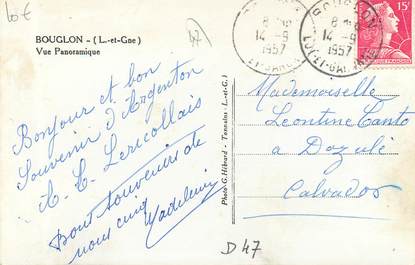 10€
47
BOUGLON - (L.-et-Gne)
Vue Panoramique
Bonjour et bon
Souvenir d'Argenton
Bons souvenirs de
nous cinq
Madeleine
Photo-G. Hébrard - Tonneins (L.-et-G.)
14-9
1957
BOUGLON
8
14-9
1957
LOT-ET-GARONNE
15F
Mademoiselle
Leontine Canto
a Dozulé
Calvados
D 47